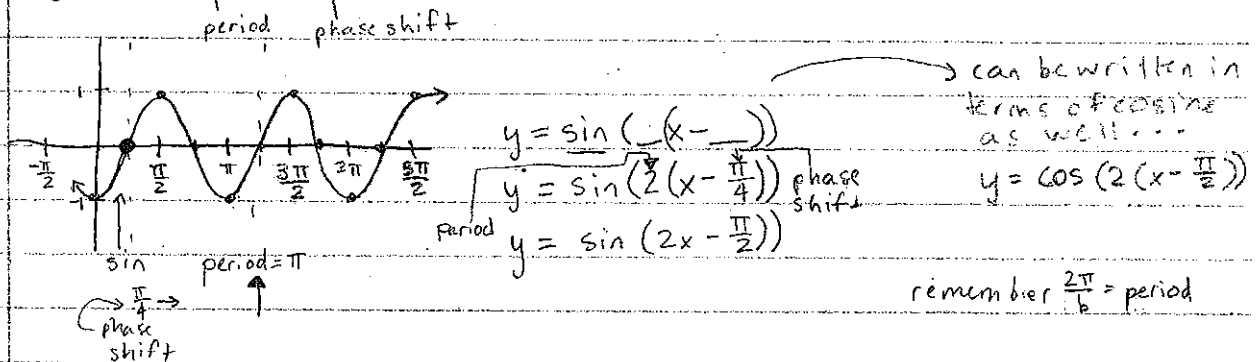 period phase shift
1
-π/2 π/2 π 3π/2 2π 5π/2
-1
sin period = π
π/4 →
phase shift
y = sin (_(x - __))
y = sin (2(x - π/4)) phase shift
period
y = sin (2x - π/2))
can be written in
terms of cosine
as well...
y = cos (2(x - π/2))
remember 2π/b = period